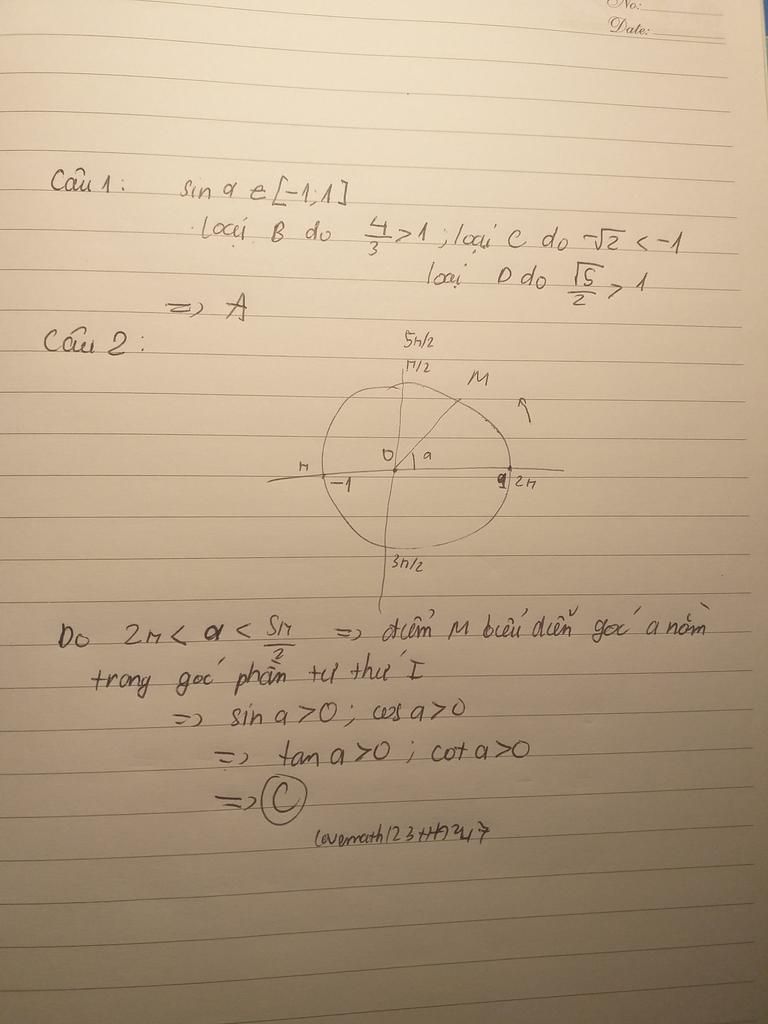 No:
Date:
Câu 1: sin a ∈ [-1;1]
loại B do 4/3 > 1 ; loại C do -√2 < -1
loại D do √5/2 > 1
=> A
Câu 2:
5π/2
π/2
M
O
a
π
-1
1
2π
3π/2
Do 2π < a < 5π/2 => điểm M biểu diễn góc a nằm
trong góc phần tư thứ I
=> sin a > 0 ; cos a > 0
=> tan a > 0 ; cot a > 0
=> C